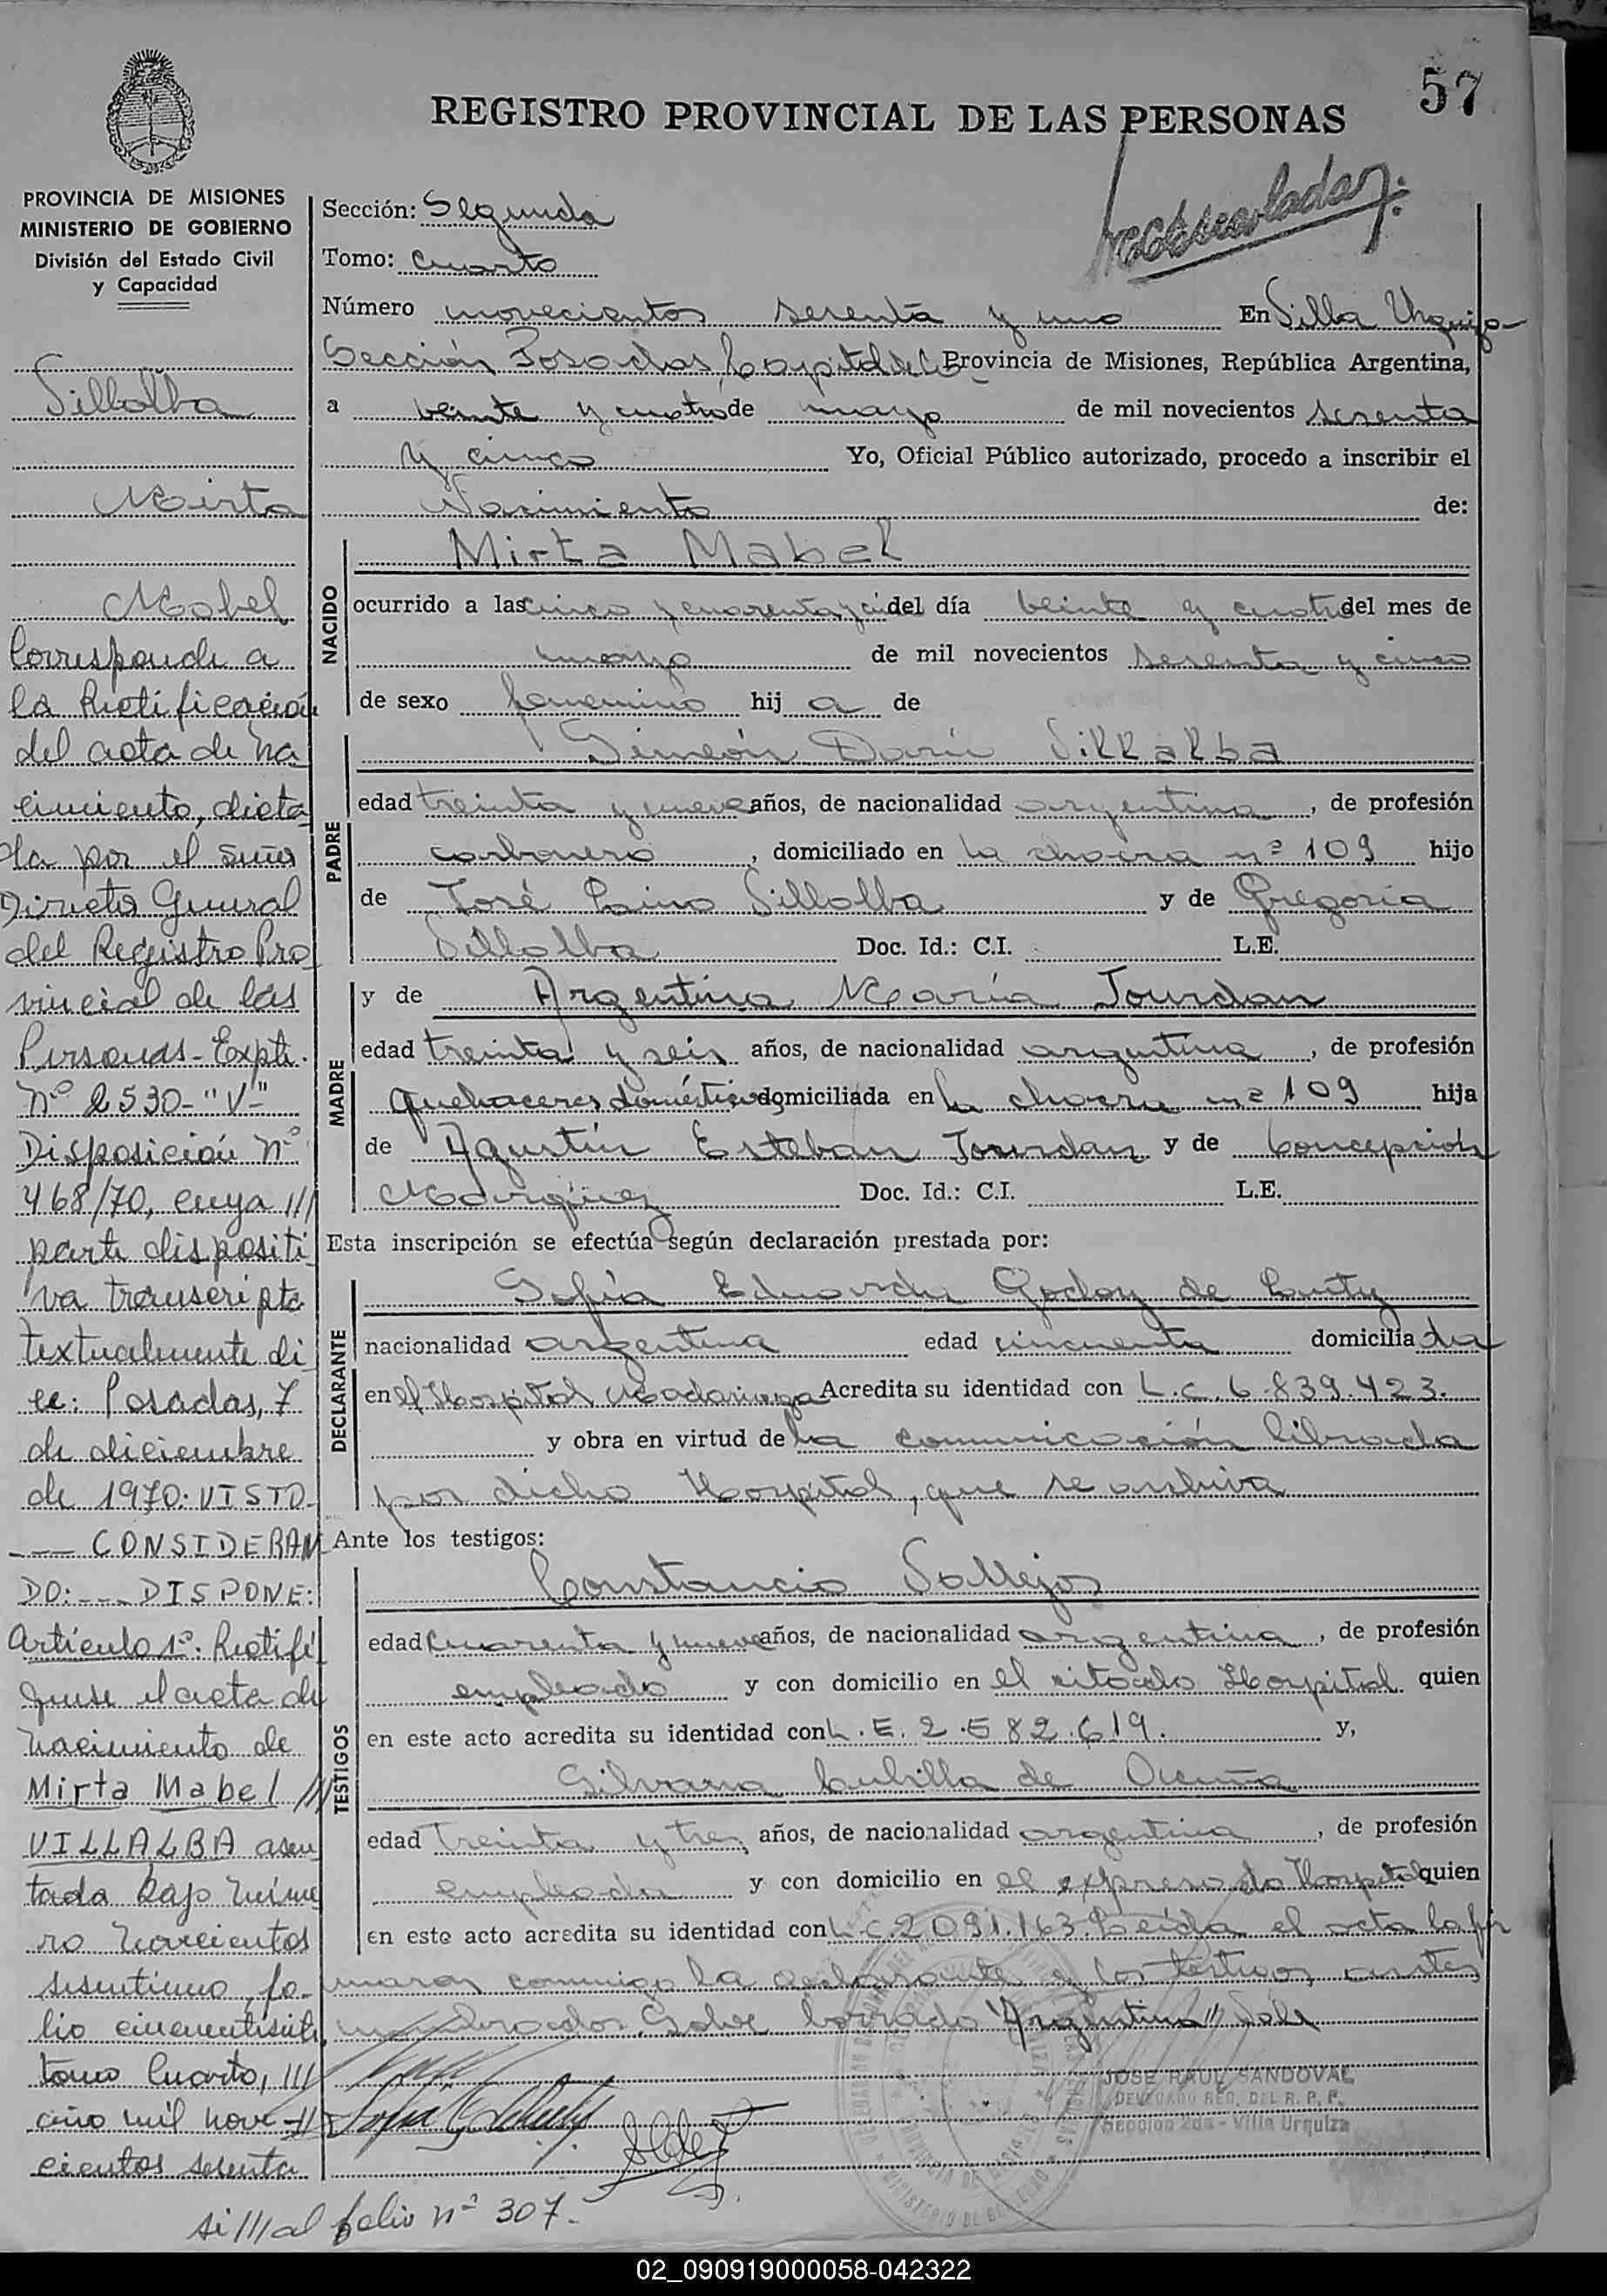 57
REGISTRO PROVINCIAL DE LAS PERSONAS
PROVINCIA DE MISIONES
MINISTERIO DE GOBIERNO
División del Estado Civil
y Capacidad
Villalba
Mirta
Mabel
Corresponde a
la Rectificación
del acta de na
cimiento, dicta
da por el señor
Director General
del Registro Pro
vincial de las
Personas - Expte.
Nº 2530-"V"-
Disposición nº
468/70, cuya ///
parte dispositi
va transcripta
textualmente di
ce: Posadas, 7
de diciembre
de 1970: VISTO-
--- CONSIDERAN
DO: --- DISPONE:
Artículo 1º: Rectifí
quese el acta de
nacimiento de
Mirta Mabel ///
VILLALBA asen
tada bajo núme
ro novecientos
sesentiuno, fo-
lio cincuentisiete,
tomo Cuarto, ///
año mil nove-//
cientos sesenta
Sección: Segunda
Tomo: Cuarto
Número novecientos sesenta y uno En Villa Urquiza-
Sección Posadas, Capital de la Provincia de Misiones, República Argentina,
a veinte y cuatro de mayo de mil novecientos sesenta
y cinco Yo, Oficial Público autorizado, procedo a inscribir el
Nacimiento de:
NACIDO
Mirta Mabel
ocurrido a las cinco y cuarenta y del día veinte y cuatro del mes de
mayo de mil novecientos sesenta y cinco
de sexo femenino hij a de
PADRE
Simeón Darío Villalba
edad treinta y nueve años, de nacionalidad argentina, de profesión
carbonero, domiciliado en la chacra nº 109 hijo
de José Lino Villalba y de Gregoria
Villalba Doc. Id.: C.I. L.E.
MADRE
y de Argentina María Jourdan
edad treinta y seis años, de nacionalidad argentina, de profesión
Quehaceres domésticos domiciliada en la chacra nº 109 hija
de Agustín Esteban Jourdan y de Concepción
Doc. Id.: C.I. L.E.
Esta inscripción se efectúa según declaración prestada por:
DECLARANTE
Sofía Eduarda Godoy de
nacionalidad argentina edad cincuenta domicilia da
en el Hospital Madariaga Acredita su identidad con L.C. 6.839.423.
y obra en virtud de la comunicación librada
por dicho Hospital, que se archiva
Ante los testigos:
TESTIGOS
Constancio Vallejos
edad Cuarenta y nueve años, de nacionalidad argentina, de profesión
empleado y con domicilio en el citado Hospital quien
en este acto acredita su identidad con L.E. 2.582.619. y,
Silvana Cubilla de Ocuña
edad treinta y tres años, de nacionalidad argentina, de profesión
empleada y con domicilio en el expresado Hospital quien
en este acto acredita su identidad con L.C. 2.091.163. Leída el acta la fir
maron conmigo la declarante y los testigos antes
nombrados. Sobre borrado "Argentina" Vale
JOSE RAUL SANDOVAL
DELEGADO REG. DEL R. P. P.
Sección 2da - Villa Urquiza
si /// al folio nº 307.-
02_090919000058-042322